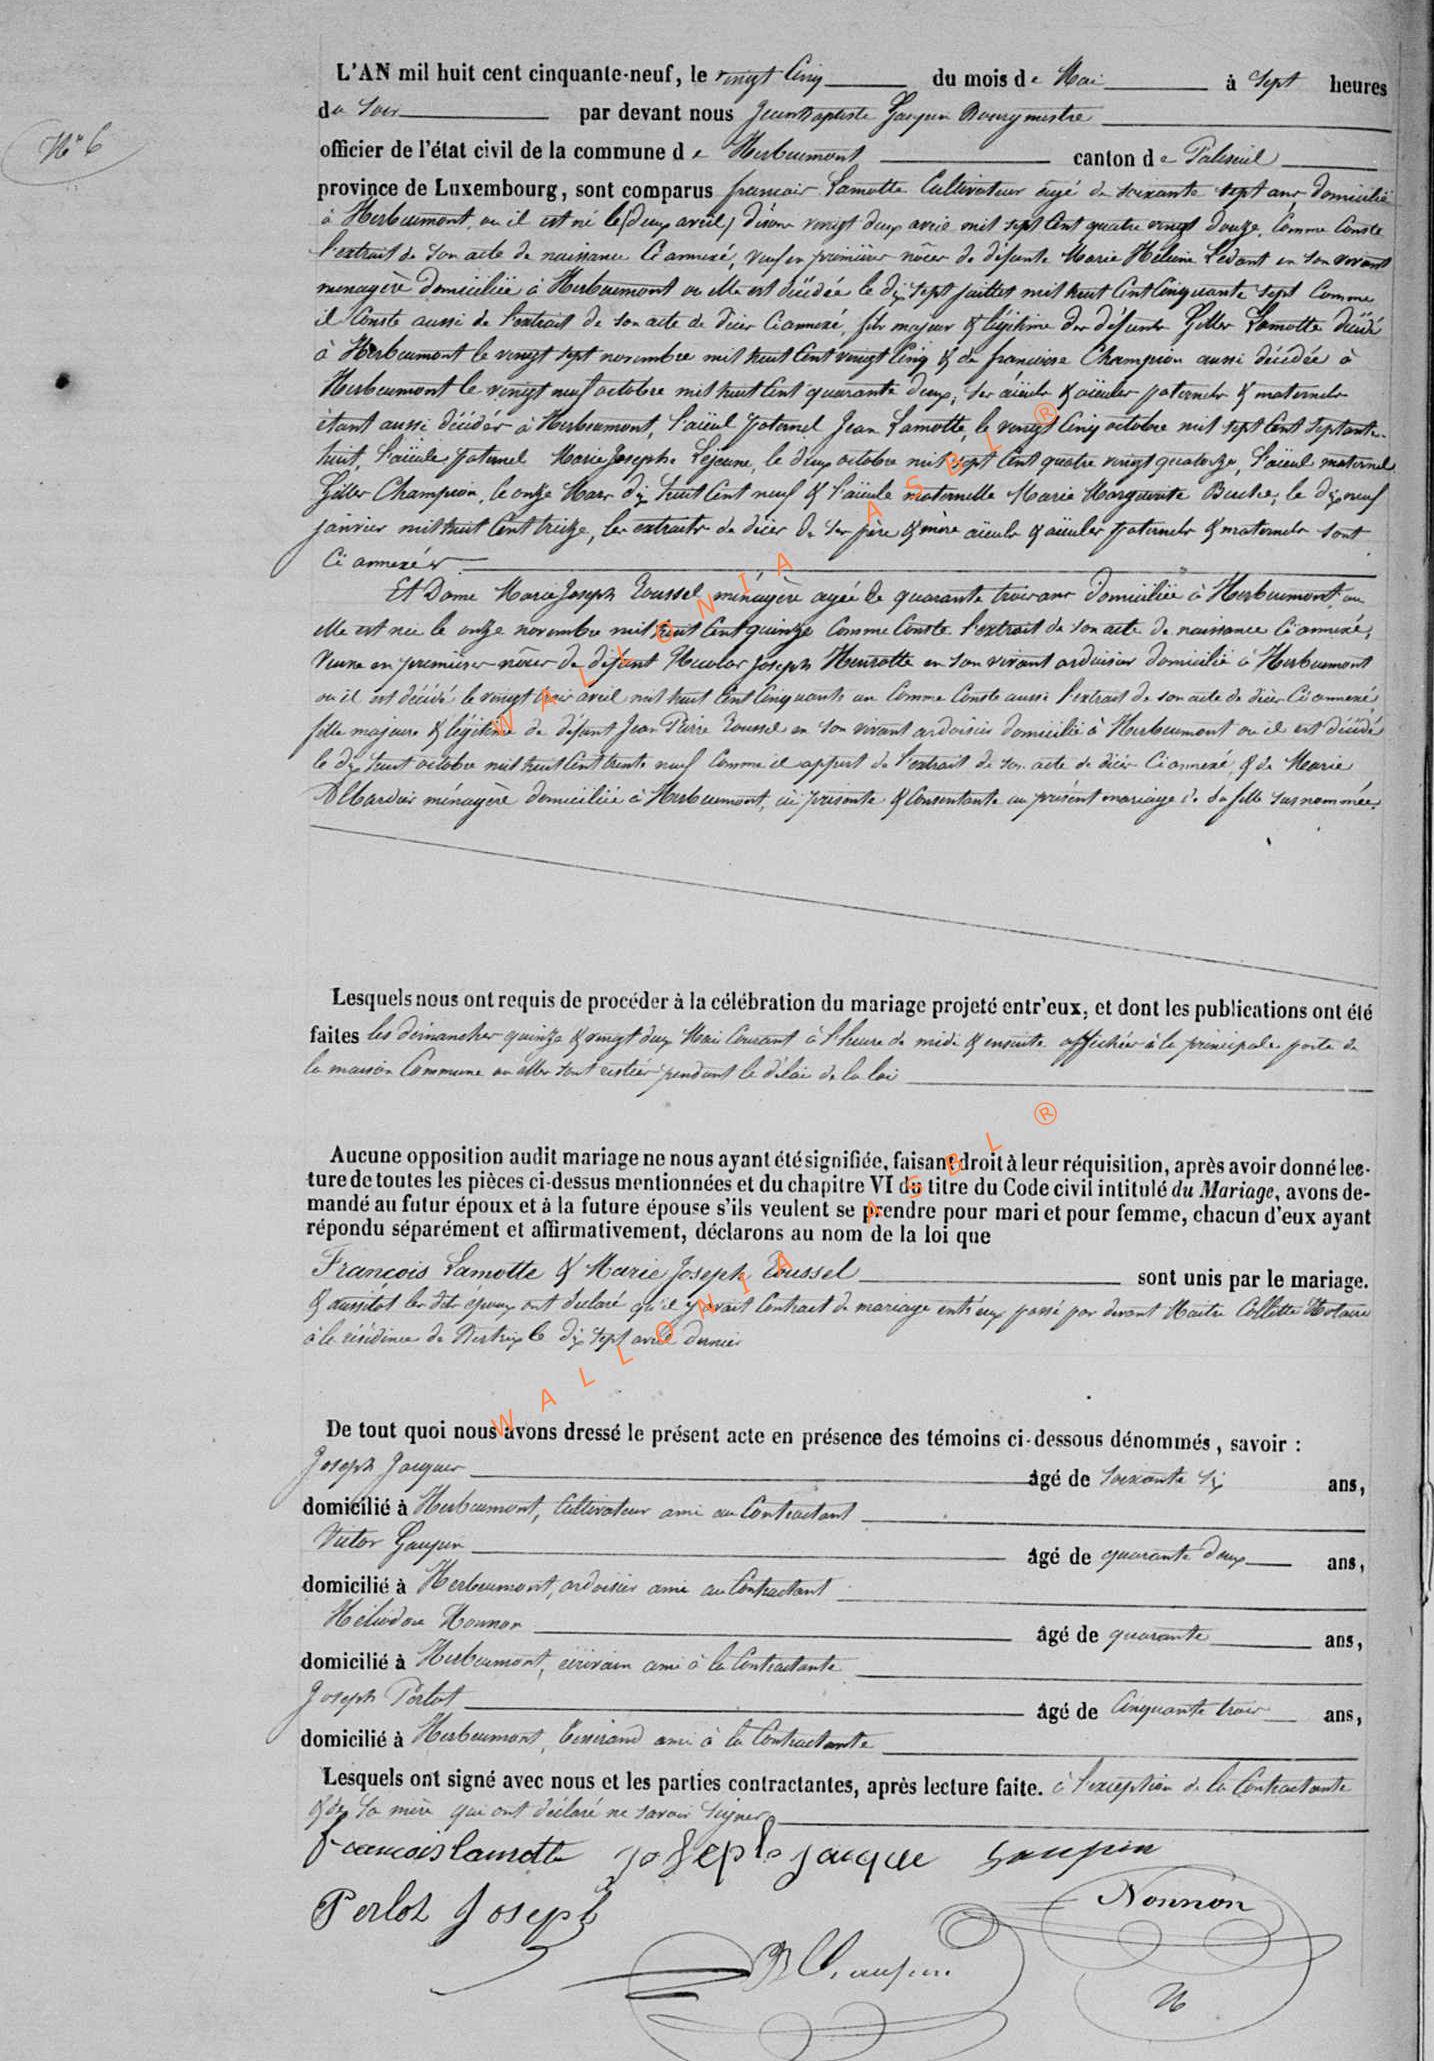 N° 6
L'AN mil huit cent cinquante-neuf, le vingt Cinq du mois de Mai à Sept heures
du soir par devant nous Jean Baptiste Gaupin Bourgmestre
officier de l'état civil de la commune de Herbeumont canton de Paliseul
province de Luxembourg, sont comparus francois Lamotte Cultivateur âgé de soixante sept ans, domicilié
à Herbeumont, ou il est né le (deux avril) disons vingt deux avril mil sept Cent quatre vingt douze, Comme Conste
l'extrait de son acte de naissance Ci annexé, veuf en premières nôces de défunte Marie Hélène Ledant en son vivant
menagère domiciliée à Herbeumont ou elle est décédée le dix sept juillet mil huit Cent Cinquante sept Comme
il Conste aussi de l'extrait de son acte de décès Ci annexé, fils majeur & légitime des défunts Gilles Lamotte décédé
à Herbeumont le vingt sept novembre mil huit Cent vingt Cinq & de francoise Champion aussi décédée à
Herbeumont le vingt neuf octobre mil huit Cent quarante deux, ses aïeuls & aïeules paternels & maternels
étant aussi décédés à Herbeumont, l'aïeul paternel Jean Lamotte, le vingt Cinq octobre mil sept Cent septante-
huit, l'aïeule paternel Marie Josephe Lejeune, le deux octobre mil sept Cent quatre vingt quatorze, l'aïeul maternel
Gilles Champion, le onze Mars dix huit Cent neuf & l'aïeule maternelle Marie Marguerite Buche, le dix neuf
janvier mil huit Cent treize, les extraits de décès de ses père & mère aïeuls & aïeules paternels & maternels sont
Ci annexés
Et Dame Marie Joseph Roussel ménagère agée de quarante trois ans domiciliée à Herbeumont, ou
elle est née le onze novembre mil huit Cent quinze Comme Conste l'extrait de son acte de naissance Ci annexé,
Veuve en premières nôces de défunt Nicolas Joseph Henrotte en son vivant ardoisier domicilié à Herbeumont
ou il est décédé le vingt trois avril mil huit Cent Cinquante un Comme Conste aussi l'extrait de son acte de décès Ci annexé,
fille majeure & légitime de défunt Jean Pierre Roussel en son vivant ardoisier domicilié à Herbeumont ou il est décédé
le dix huit octobre mil huit Cent trente neuf Comme il appert de l'extrait de son acte de décès Ci annexé, & de Marie
ménagère domiciliée à Herbeumont, ici présente & Consentante au présent mariage de sa fille susnommée.
Lesquels nous ont requis de procéder à la célébration du mariage projeté entr'eux, et dont les publications ont été
faites les dimanches quinze & vingt deux Mai Courant à l'heure de midi & ensuite affichées à la principale porte de
la maison Commune ou elles sont restées pendant le délai de la loi
Aucune opposition audit mariage ne nous ayant été signifiée, faisant droit à leur réquisition, après avoir donné lec-
ture de toutes les pièces ci-dessus mentionnées et du chapitre VI du titre du Code civil intitulé du Mariage, avons de-
mandé au futur époux et à la future épouse s'ils veulent se prendre pour mari et pour femme, chacun d'eux ayant
répondu séparément et affirmativement, déclarons au nom de la loi que
François Lamotte & Marie Joseph Roussel sont unis par le mariage.
& aussitot les dits époux ont déclaré qu'il y avait Contract de mariage entr'eux passé par devant Maitre Collette Notaire
à la résidence de Bertrix le dix sept avril dernier
De tout quoi nous avons dressé le présent acte en présence des témoins ci-dessous dénommés, savoir :
Joseph Jacques âgé de soixante six ans,
domicilié à Herbeumont, Cultivateur ami au Contractant
Victor Gaupin âgé de quarante deux ans,
domicilié à Herbeumont, ardoisier ami au Contractant
Héliodore Nonnon âgé de quarante ans,
domicilié à Herbeumont, écrivain ami à la Contractante
Joseph Perlot âgé de Cinquante trois ans,
domicilié à Herbeumont, tisserand ami à la Contractante
Lesquels ont signé avec nous et les parties contractantes, après lecture faite. à l'exception de la Contractante
& de sa mère qui ont déclaré ne savoir signer
francois lamotte joseph jacque Gaupin
Perlot Joseph Nonnon
JB Gaupin
WALLONIA ASBL ®
WALLONIA ASBL ®